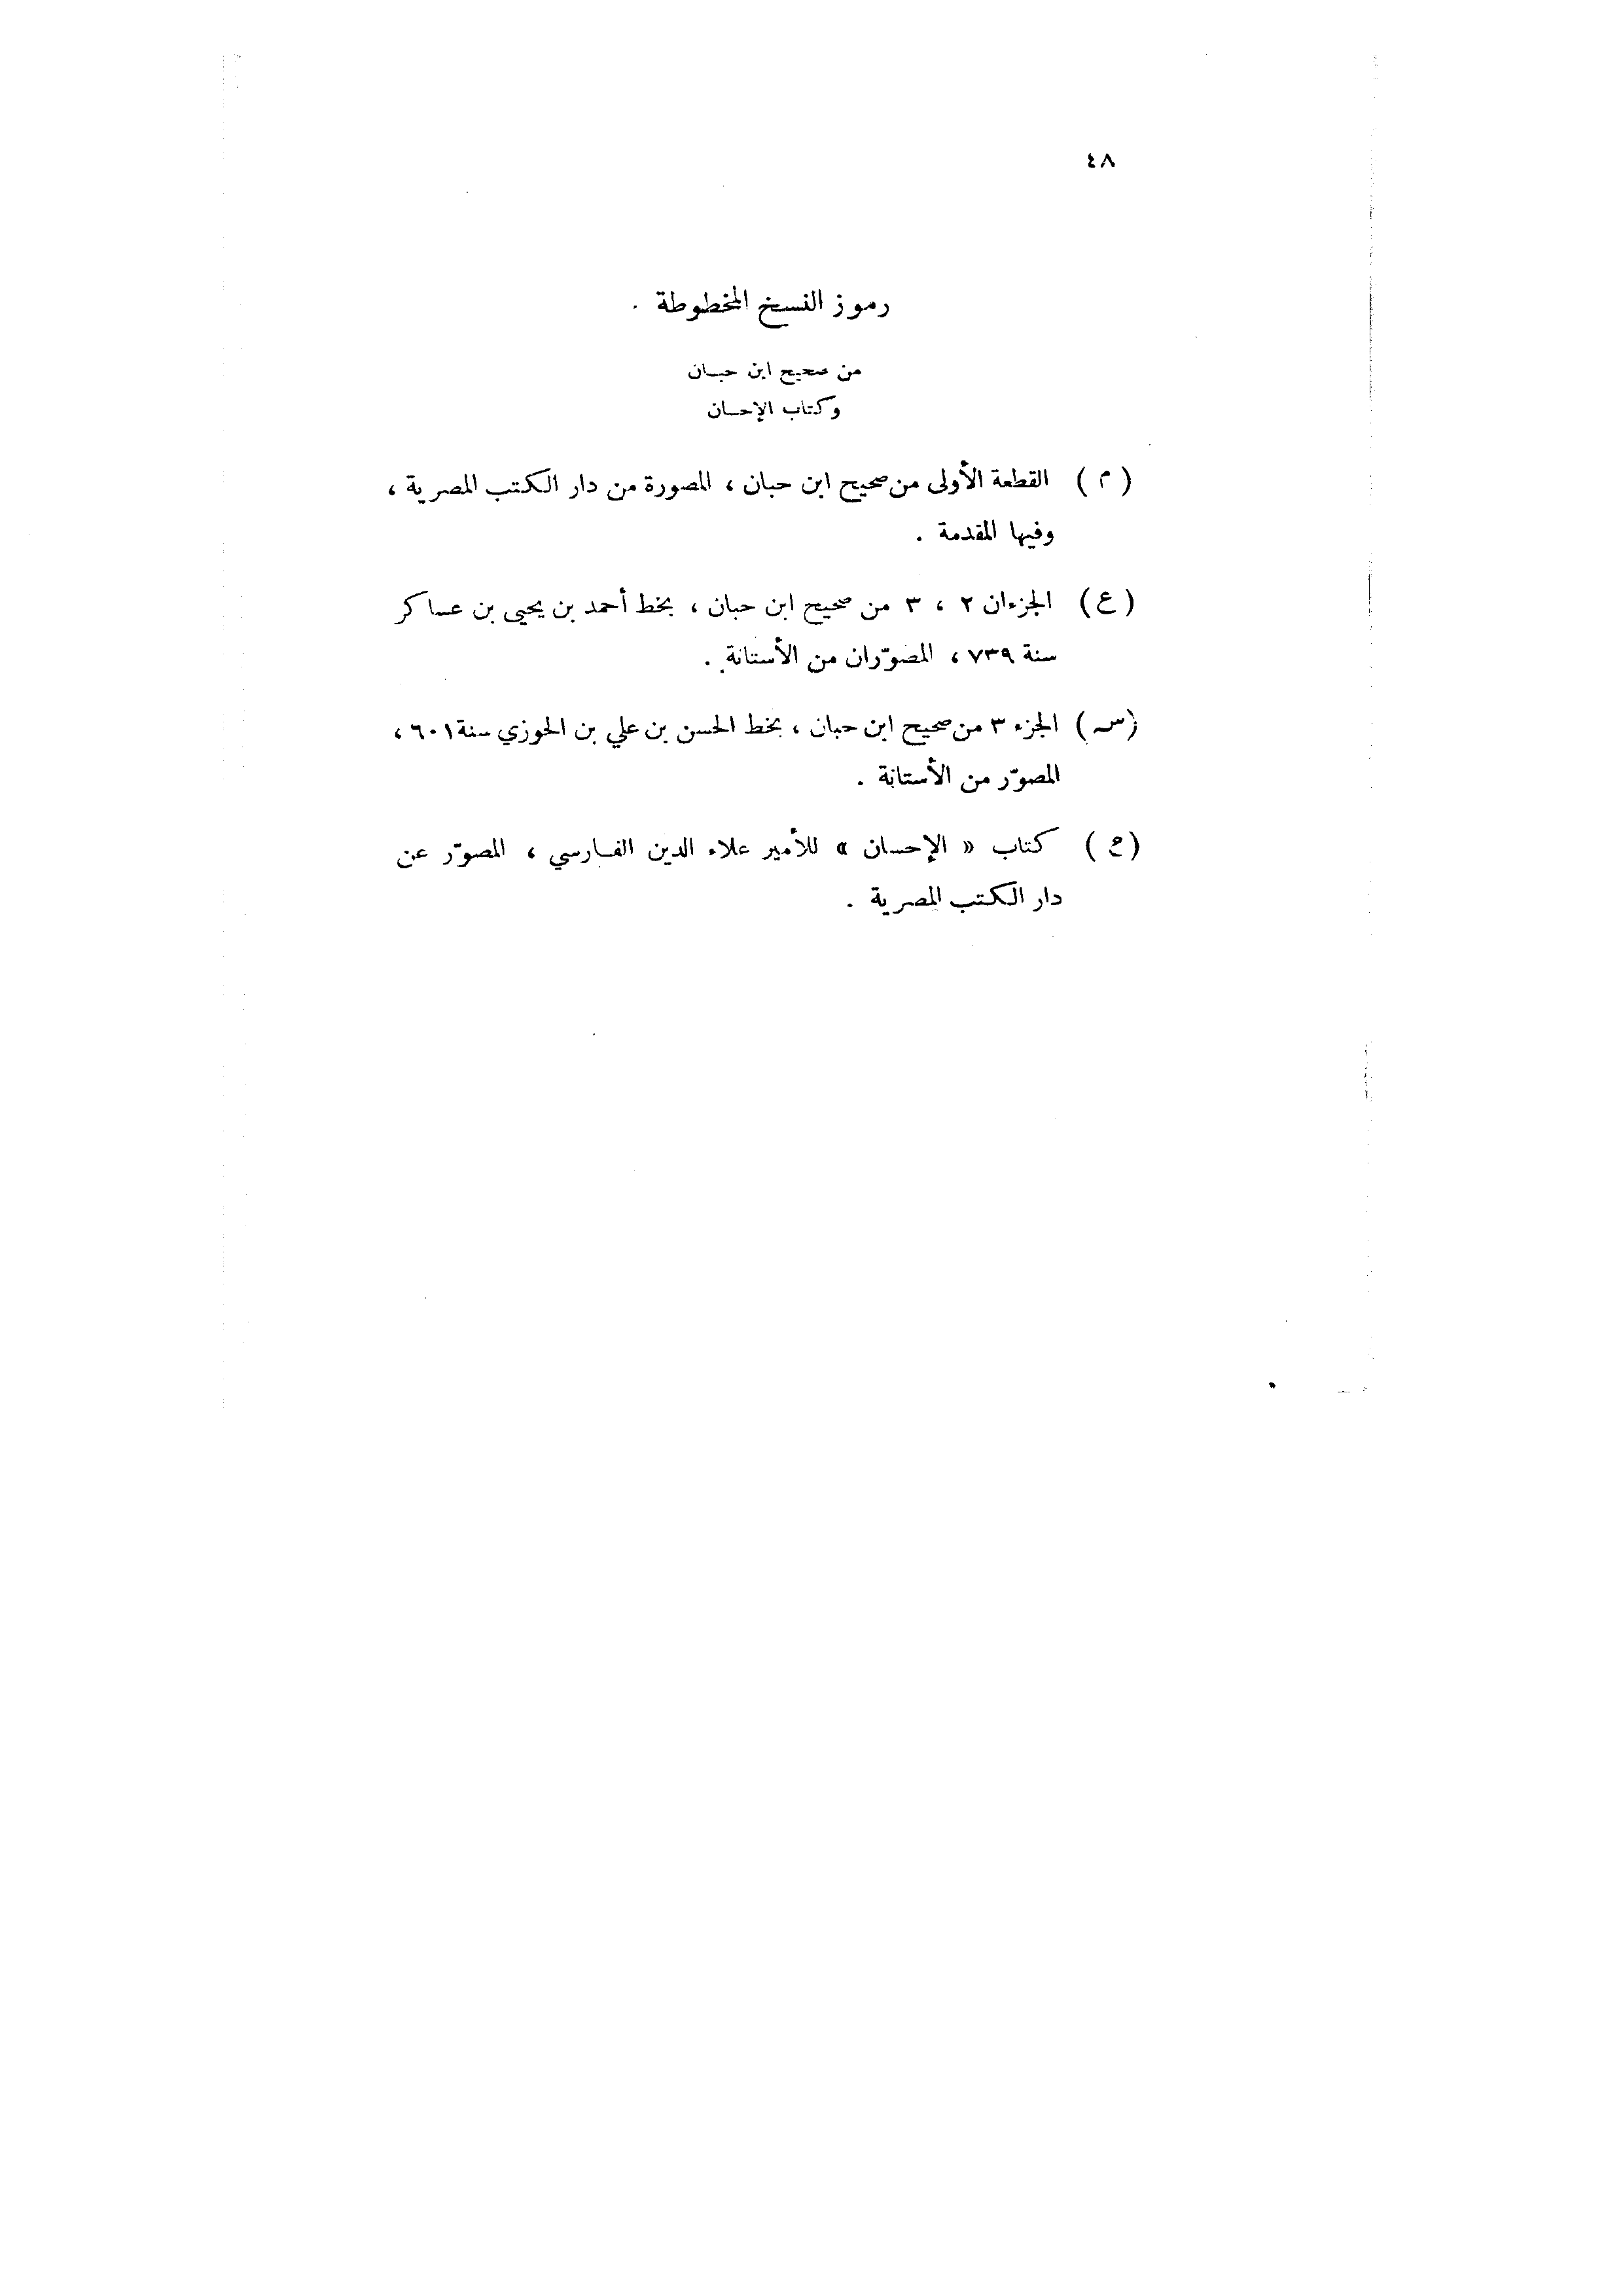 ٤٨
رموز النسخ المخطوطة .
من صحيح ابن حبان
وكتاب الإحسان
( م ) القطعة الأولى من صحيح ابن حبان ، المصورة من دار الكتب المصرية ،
وفيها المقدمة .
( ع ) الجزءان ٢ ، ٣ من صحيح ابن حبان ، بخط أحمد بن يحيى بن عساكر
سنة ٧٣٩ ، المصوّران من الأستانة .
( س ) الجزء ٣ من صحيح ابن حبان ، بخط الحسن بن علي بن الجوزي سنة ٦٠١ ،
المصوّر من الأستانة .
( ح ) كتاب « الإحسان » للأمير علاء الدين الفارسي ، المصوّر عن
دار الكتب المصرية .